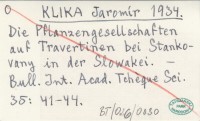 O KLIKA Jaromír 1934.
Die Pflanzengesellschaften
auf Travertinen bei Stanko-
vany in der Slowakei. –
Bull. Int. Acad. Tchèque Sci.
35: 41-44.
BT/026/0030